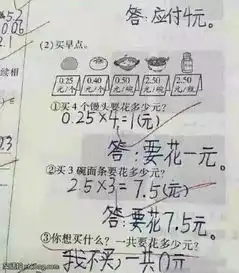 答:应付4元。
(2)买早点。
0.25元/个 0.40元/个 0.50元/碗 2.50元/碗 2.50元/瓶
①买4个馒头要花多少元?
0.25×4=1(元)
答:要花一元。
②买3碗面条要花多少元?
2.5×3=7.5(元)
答:要花7.5元。
③你想买什么?一共要花多少元?
我不买,一共0元